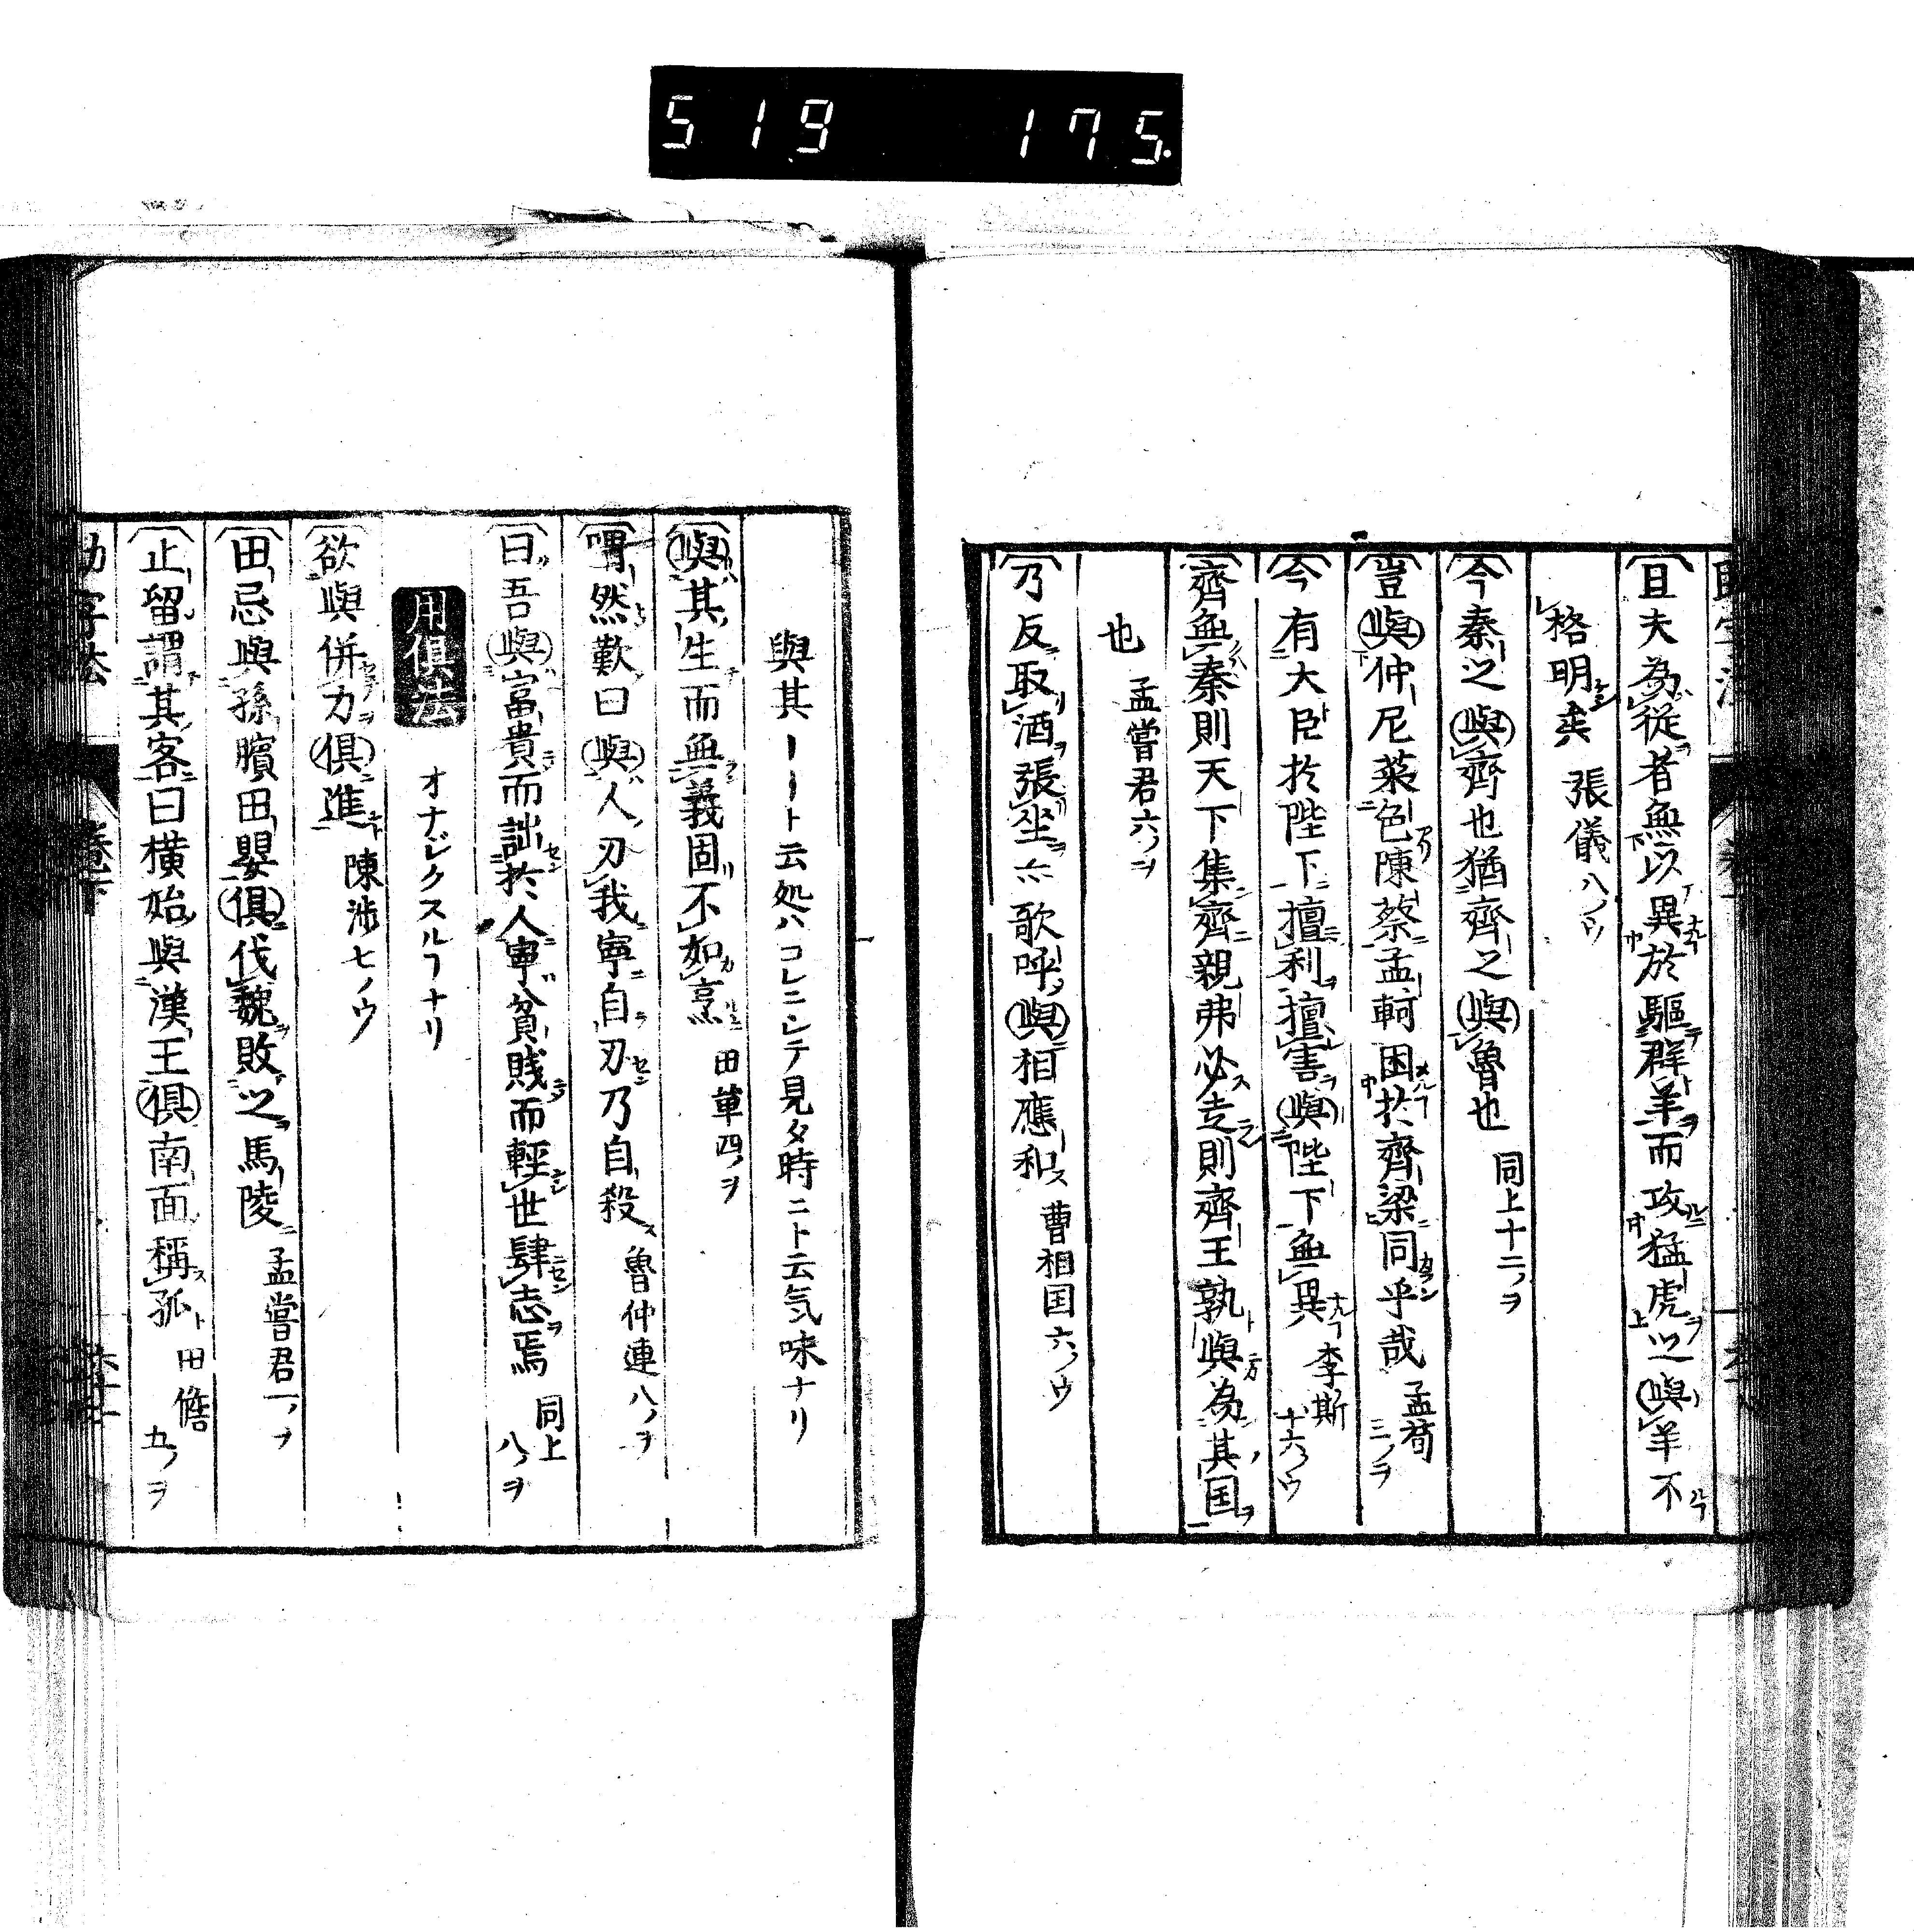 519 175.
且夫為從者無以異於驅群羊而攻猛虎之與羊不
格明矣 張儀八ノウ
今秦之與齊也猶齊之與魯也 同上十二ノヲ
豈與仲尼菜色陳蔡孟軻困於齊梁同乎哉 孟荀三ノヲ
今有大臣於陛下擅利擅害與陛下無異 李斯十六ノウ
齊無秦則天下集齊親弗必走則齊王孰與為其国
也 孟嘗君六ノヲ
乃反取酒張坐亦歌呼與相應和 曹相国六ノウ
與其ーート云処ハコレニシテ見タ時ニト云気味ナリ
與其生而無義固不如烹 田單四ノヲ
喟然歎曰與人刃我寧自刃乃自殺 魯仲連八ノヲ
曰吾與富貴而詘於人寧貧賤而輕世肆志焉 同上八ノヲ
用俱法 オナジクスルヿナリ
欲與併力俱進 陳渉七ノウ
田忌與孫臏田嬰俱伐魏敗之馬陵 孟嘗君一ノヲ
止留謂其客曰横始與漢王俱南面稱孤 田儋五ノヲ